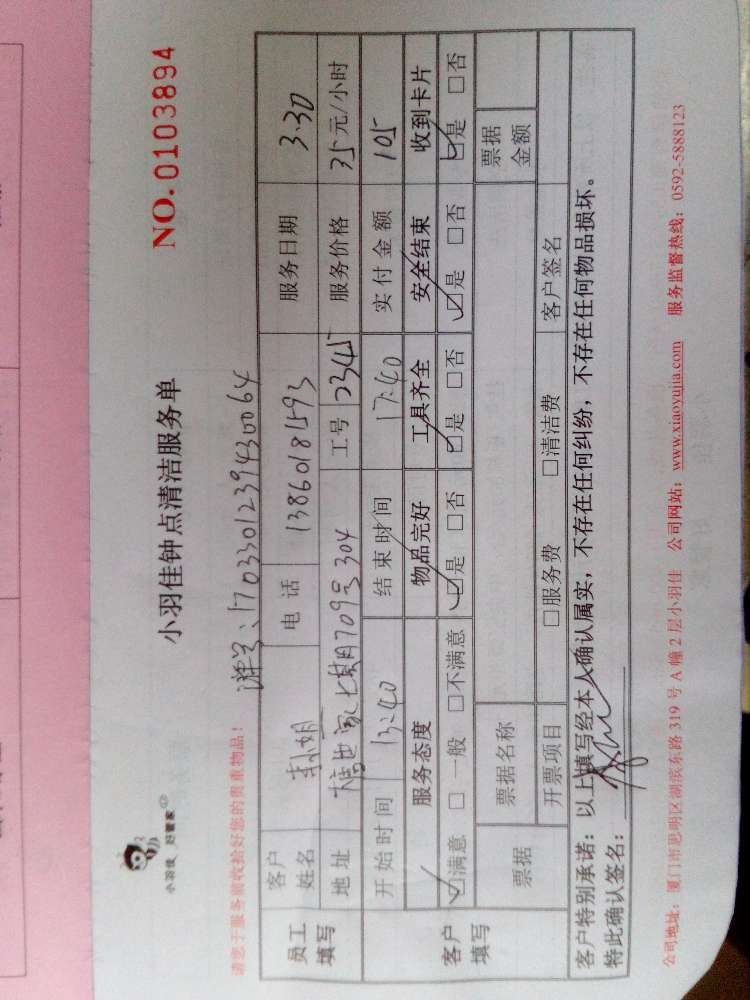 小羽佳 好管家
小羽佳钟点清洁服务单
NO.0103894
请您于服务前收拾好您的贵重物品!
单号:1703301239430064
员工填写
客户姓名
电话 13860181593
服务日期 3.30
地址 七期709号304
工号 2345
服务价格 35元/小时
客户填写
开始时间 13:40
结束时间 17:40
实付金额 105
服务态度
物品完好
工具齐全
安全结束
收到卡片
☑满意 □一般 □不满意
☑是 □否
☑是 □否
☑是 □否
☑是 □否
票据
票据名称
票据金额
开票项目
□服务费
□清洁费
客户签名
客户特别承诺:以上填写经本人确认属实,不存在任何纠纷,不存在任何物品损坏。
特此确认签名:
公司地址:厦门市思明区湖滨东路319号A幢2层小羽佳 公司网站:www.xiaoyujia.com 服务监督热线:0592-5888123